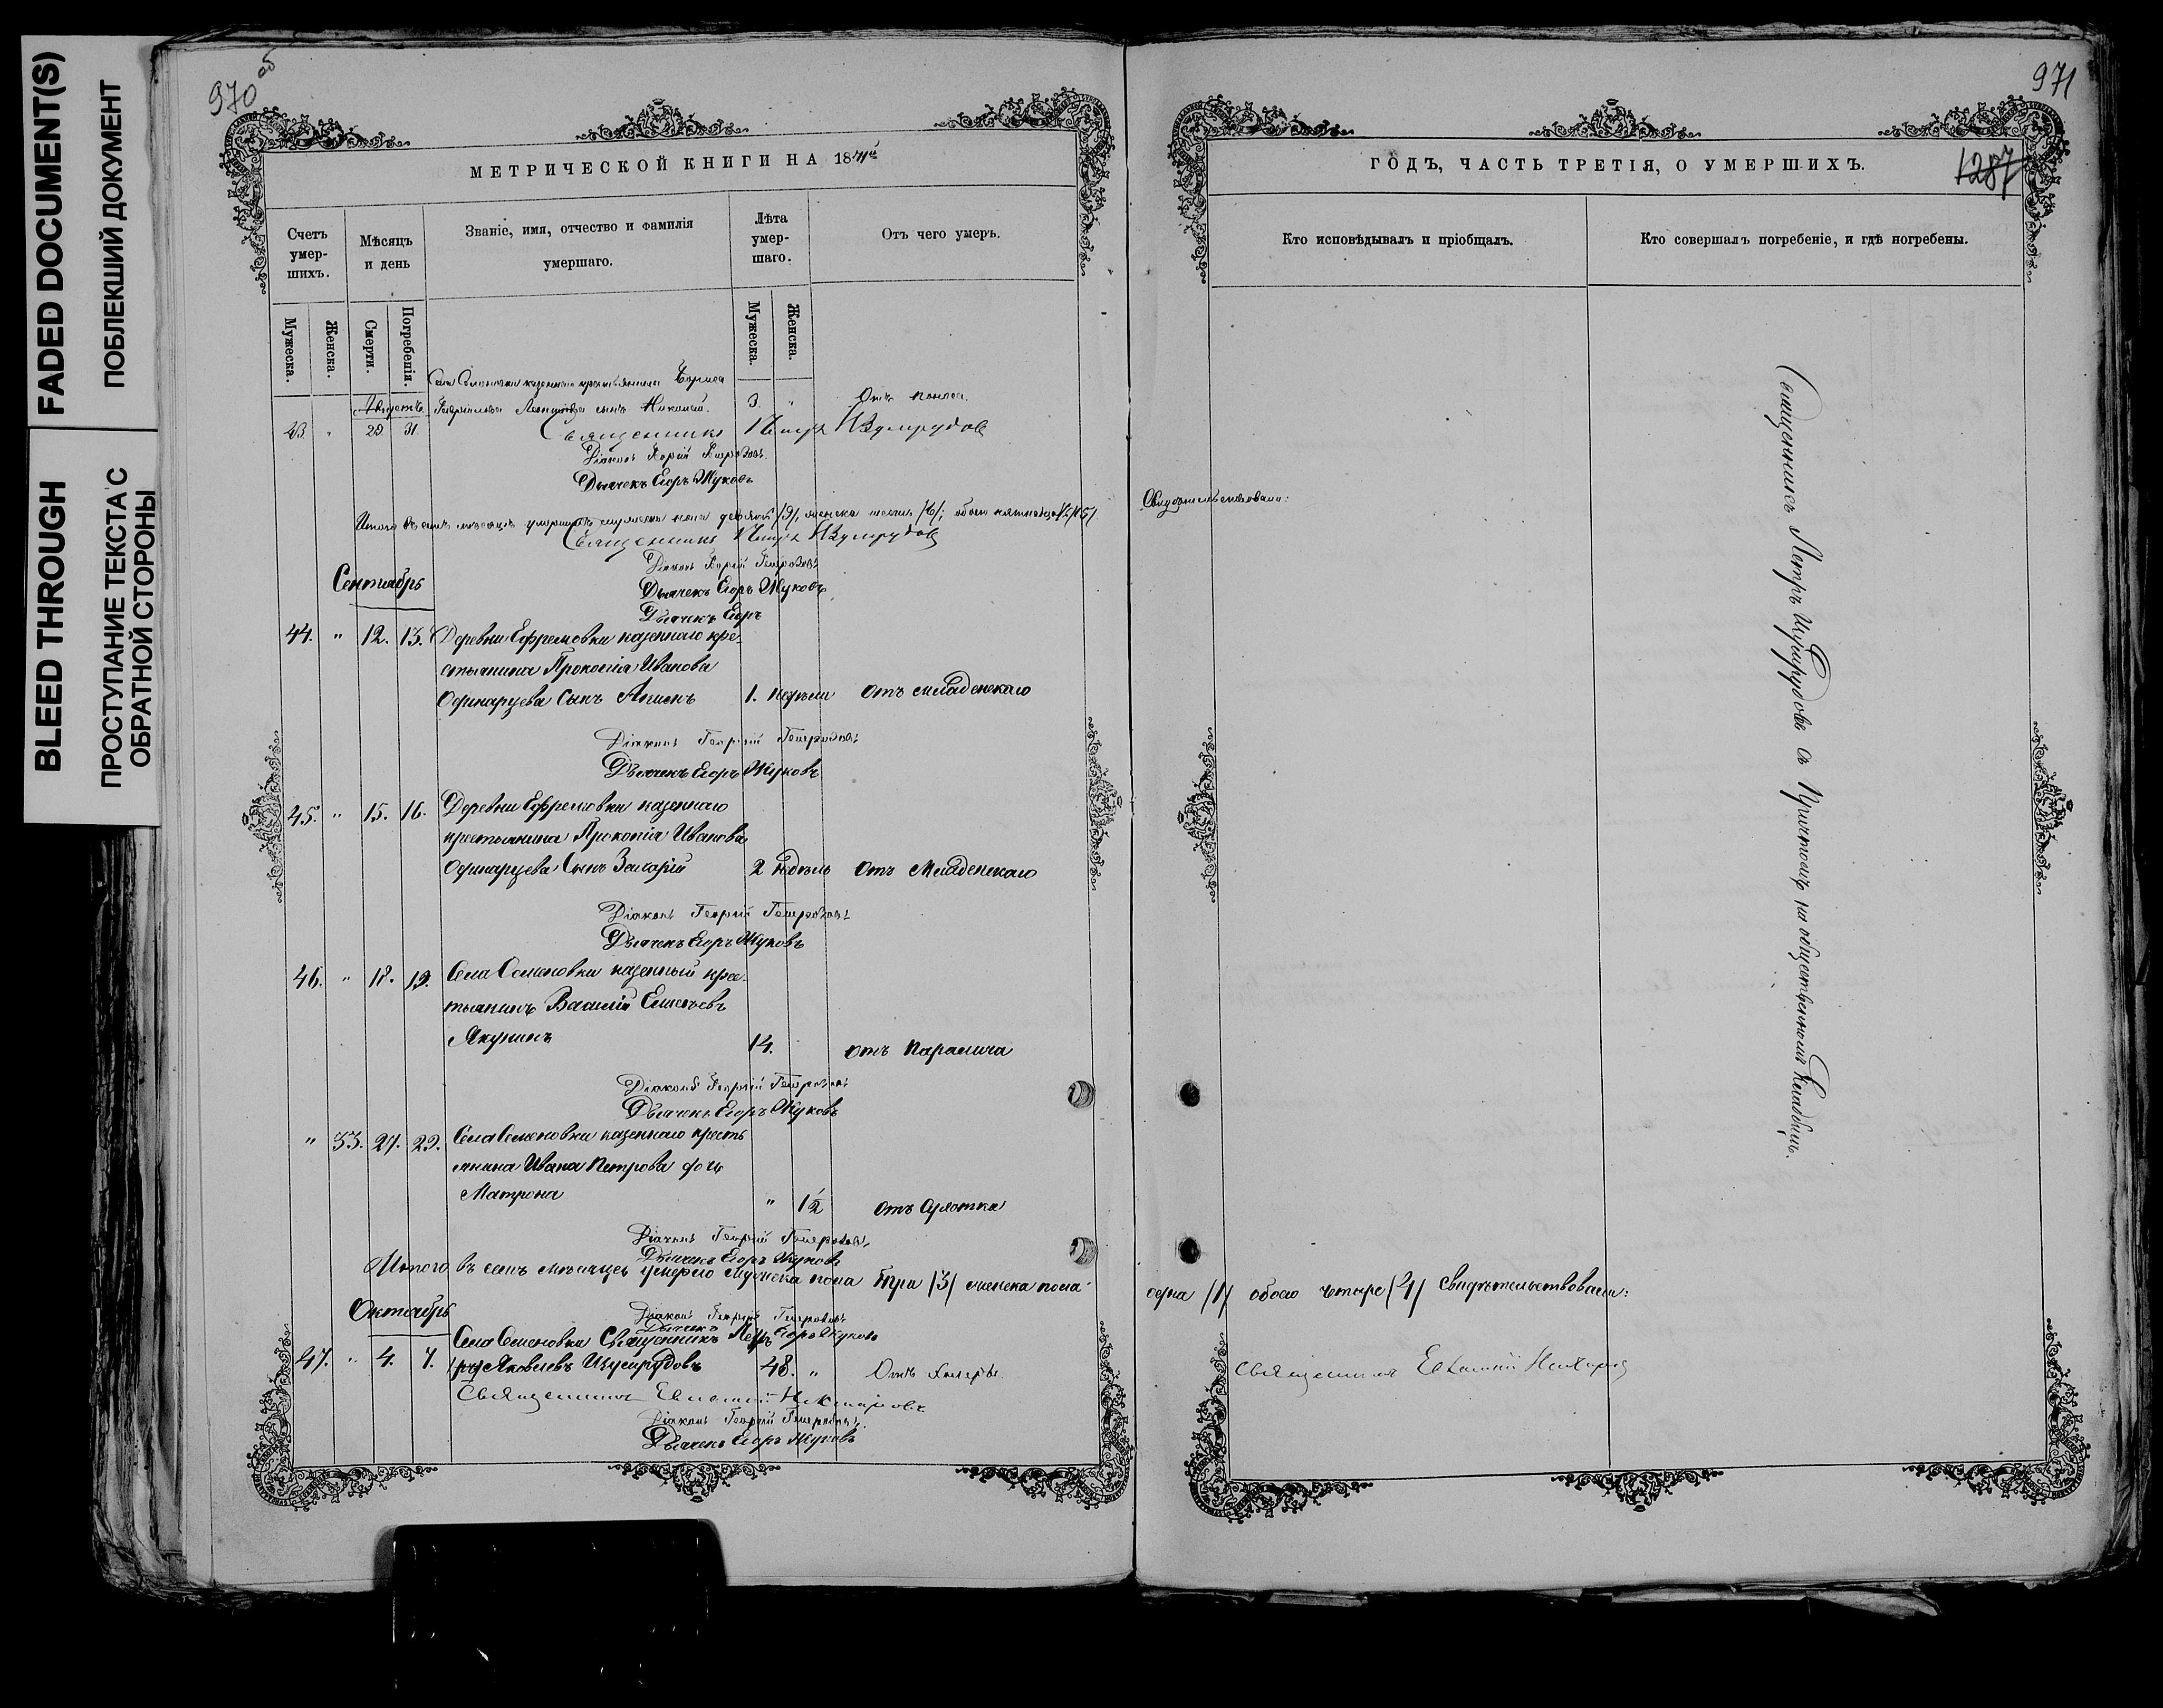 FADED DOCUMENT(S)
ПОБЛЕКШИЙ ДОКУМЕНТ
BLEED THROUGH
ПРОСТУПАНИЕ ТЕКСТА С
ОБРАТНОЙ СТОРОНЫ
970 об
МЕТРИЧЕСКОЙ КНИГИ НА 1871й
Счетъ умер-шихъ.
Мѣсяцъ и день
Званіе, имя, отчество и фамилія умершаго.
Лѣта умер-шаго.
Отъ чего умеръ.
Мужеска.
Женска.
Смерти.
Погребенія.
Мужеска.
Женска.
Села Семеновки казеннаго крестьянина Бориса
Августъ Гавриилова сынъ Николай. 3. " Отъ поноса.
43. " 29 31.
Священникъ Петръ Изумрудов
Діаконъ
Дьячекъ Егоръ Жуковъ
Итого въ семъ мѣсяцѣ умершихъ мужеска пола девять /9/, женска шесть /6/; обоего пятнадцать /15/.
Священникъ Петръ Изумрудов
Діаконъ
Дьячекъ Егоръ Жуковъ
Дьячекъ Егоръ
Сентябрь
44. " 12. 13. Деревни Ефремовки казеннаго кре-
стьянина Прокопія Иванова
Одинарцева Сынъ 1. недѣли Отъ младенскаго
Діаконъ Георгій
Дьячекъ Егоръ Жуковъ
45. " 15. 16. Деревни Ефремовки казеннаго
крестьянина Прокопія Иванова
Одинарцева Сынъ Захарій 2 недѣль Отъ Младенскаго
Діаконъ Георгій
Дьячекъ Егоръ Жуковъ
46. " 18. 19. Села Семеновки казенный крес-
тьянинъ Василій Елисѣевъ
Якунинъ 14. Отъ Паралича
Діаконъ Георгій
Дьячекъ Егоръ Жуковъ
" 33. 27. 29. Села Семеновки казеннаго кресть
янина Ивана Петрова дочь
Матрона " 1/2 Отъ
Діаконъ Георгій
Дьячекъ Егоръ Жуковъ
Итого въ семъ мѣсяцѣ умерло Мужеска пола три /3/ женска пола
Октябрь
Діаконъ Георгій
Дьячекъ Егоръ Жуковъ
Села Семеновки Священникъ Петръ
47. " 4. 7. Яковлевъ Изумрудовъ 48. " Отъ холеры.
Священникъ Евѳимій
Діаконъ Георгій
Дьячекъ Егоръ Жуковъ
971
1287
ГОДЪ, ЧАСТЬ ТРЕТІЯ, О УМЕРШИХЪ.
Кто исповѣдывалъ и пріобщалъ.
Кто совершалъ погребеніе, и гдѣ погребены.
Свидѣтельствовали:
Священникъ Петръ Изумрудовъ съ Причтомъ на общественномъ Кладбищѣ.
одна /1/ обоего четыре /4/ Свидѣтельствовали:
Священникъ Евѳимій